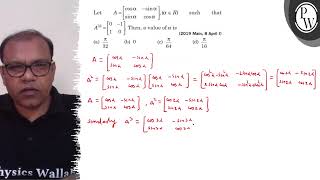 Let A = [cosα −sinα; sinα cosα], (α ∈ R) such that
A³² = [0 −1; 1 0]. Then, a value of α is
(2019 Main, 8 April I)
(a) π/32 (b) 0 (c) π/64 (d) π/16
A = [cosα −sinα; sinα cosα]
A² = [cosα −sinα; sinα cosα] [cosα −sinα; sinα cosα] = [cos²α−sin²α −sinαcosα; sinαcosα −sin²α+cos²α] = [cos2α −sin2α; sin2α cos2α]
A = [cosα −sinα; sinα cosα], A² = [cos2α −sin2α; sin2α cos2α]
Similarly A³ = [cos3α −sin3α; sin3α cos3α]
PW
hysics Wallah